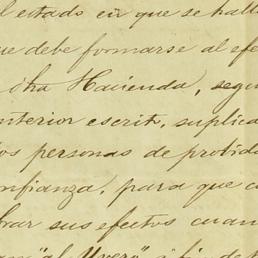 el estado en que se hall
que debe formarse al efe
dha Hacienda, segu
anterior escrito, suplica
os personas de probida
nfianza, para que c
brar sus efectos cuan
"al Uvero" á fin de